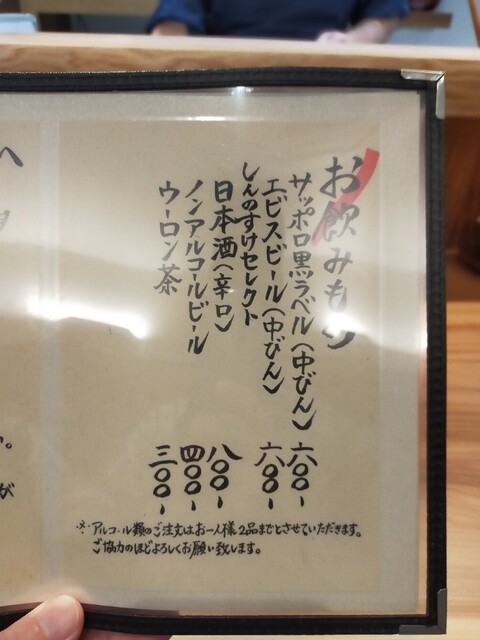 お飲みもの
サッポロ黒ラベル(中びん) 六〇〇-
エビスビール(中びん) 六〇〇-
しんのすけセレクト
日本酒(辛口) 八〇〇-
ノンアルコールビール 四〇〇-
ウーロン茶 三〇〇-
※アルコール類のご注文はお一人様2品までとさせていただきます。
ご協力のほどよろしくお願い致します。
へ
。
が